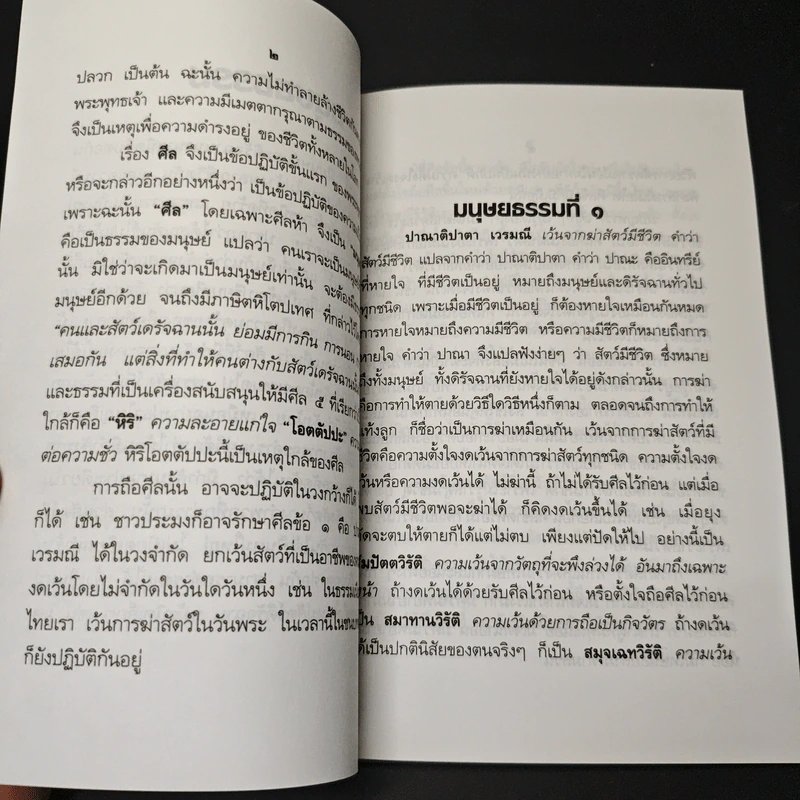 ๒
ปลวก เป็นต้น ฉะนั้น ความไม่ทำลายล้างชีวิต
พระพุทธเจ้า และความมีเมตตากรุณาตามธรรมของ
จึงเป็นเหตุเพื่อความดำรงอยู่ ของชีวิตทั้งหลายใน
เรื่อง ศีล จึงเป็นข้อปฏิบัติขั้นแรก ของ
หรือจะกล่าวอีกอย่างหนึ่งว่า เป็นข้อปฏิบัติของความ
เพราะฉะนั้น “ศีล” โดยเฉพาะศีลห้า จึงเป็น
คือเป็นธรรมของมนุษย์ แปลว่า คนเราจะเป็นมนุษย์
นั้น มิใช่ว่าจะเกิดมาเป็นมนุษย์เท่านั้น จะต้อง
มนุษย์อีกด้วย จนถึงมีภาษิตหิโตปเทศ ที่กล่าวไว้
“คนและสัตว์เดรัจฉานนั้น ย่อมมีการกิน การนอน
เสมอกัน แต่สิ่งที่ทำให้คนต่างกับสัตว์เดรัจฉาน
และธรรมที่เป็นเครื่องสนับสนุนให้มีศีล ๕ ที่เรียกว่า
ใกล้ก็คือ “หิริ” ความละอายแก่ใจ “โอตตัปปะ”
ต่อความชั่ว หิริโอตตัปปะนี้เป็นเหตุใกล้ของศีล
การถือศีลนั้น อาจจะปฏิบัติในวงกว้างก็ได้
ก็ได้ เช่น ชาวประมงก็อาจรักษาศีลข้อ ๑ คือ
เวรมณี ได้ในวงจำกัด ยกเว้นสัตว์ที่เป็นอาชีพของ
งดเว้นโดยไม่จำกัดในวันใดวันหนึ่ง เช่น ในธรรม
ไทยเรา เว้นการฆ่าสัตว์ในวันพระ ในเวลานี้ใน
ก็ยังปฏิบัติกันอยู่
มนุษยธรรมที่ ๑
ปาณาติปาตา เวรมณี เว้นจากฆ่าสัตว์มีชีวิต คำว่า
สัตว์มีชีวิต แปลจากคำว่า ปาณาติปาตา คำว่า ปาณะ คืออินทรีย์
ที่หายใจ ที่มีชีวิตเป็นอยู่ หมายถึงมนุษย์และดิรัจฉานทั่วไป
ทุกชนิด เพราะเมื่อมีชีวิตเป็นอยู่ ก็ต้องหายใจเหมือนกันหมด
การหายใจหมายถึงความมีชีวิต หรือความมีชีวิตก็หมายถึงการ
หายใจ คำว่า ปาณา จึงแปลฟังง่ายๆ ว่า สัตว์มีชีวิต ซึ่งหมาย
ถึงทั้งมนุษย์ ทั้งดิรัจฉานที่ยังหายใจได้อยู่ดังกล่าวนั้น การฆ่า
คือการทำให้ตายด้วยวิธีใดวิธีหนึ่งก็ตาม ตลอดจนถึงการทำให้
แท้งลูก ก็ชื่อว่าเป็นการฆ่าเหมือนกัน เว้นจากการฆ่าสัตว์ที่มี
ชีวิตคือความตั้งใจงดเว้นจากการฆ่าสัตว์ทุกชนิด ความตั้งใจงด
เว้นหรือความงดเว้นได้ ไม่ฆ่านี้ ถ้าไม่ได้รับศีลไว้ก่อน แต่เมื่อ
พบสัตว์มีชีวิตพอจะฆ่าได้ ก็คิดงดเว้นขึ้นได้ เช่น เมื่อยุง
กัดจะตบให้ตายก็ได้แต่ไม่ตบ เพียงแต่ปัดให้ไป อย่างนี้เป็น
สัมปัตตวิรัติ ความเว้นจากวัตถุที่จะพึงล่วงได้ อันมาถึงเฉพาะ
หน้า ถ้างดเว้นได้ด้วยรับศีลไว้ก่อน หรือตั้งใจถือศีลไว้ก่อน
เป็น สมาทานวิรัติ ความเว้นด้วยการถือเป็นกิจวัตร ถ้างดเว้น
ได้เป็นปกตินิสัยของตนจริงๆ ก็เป็น สมุจเฉทวิรัติ ความเว้น